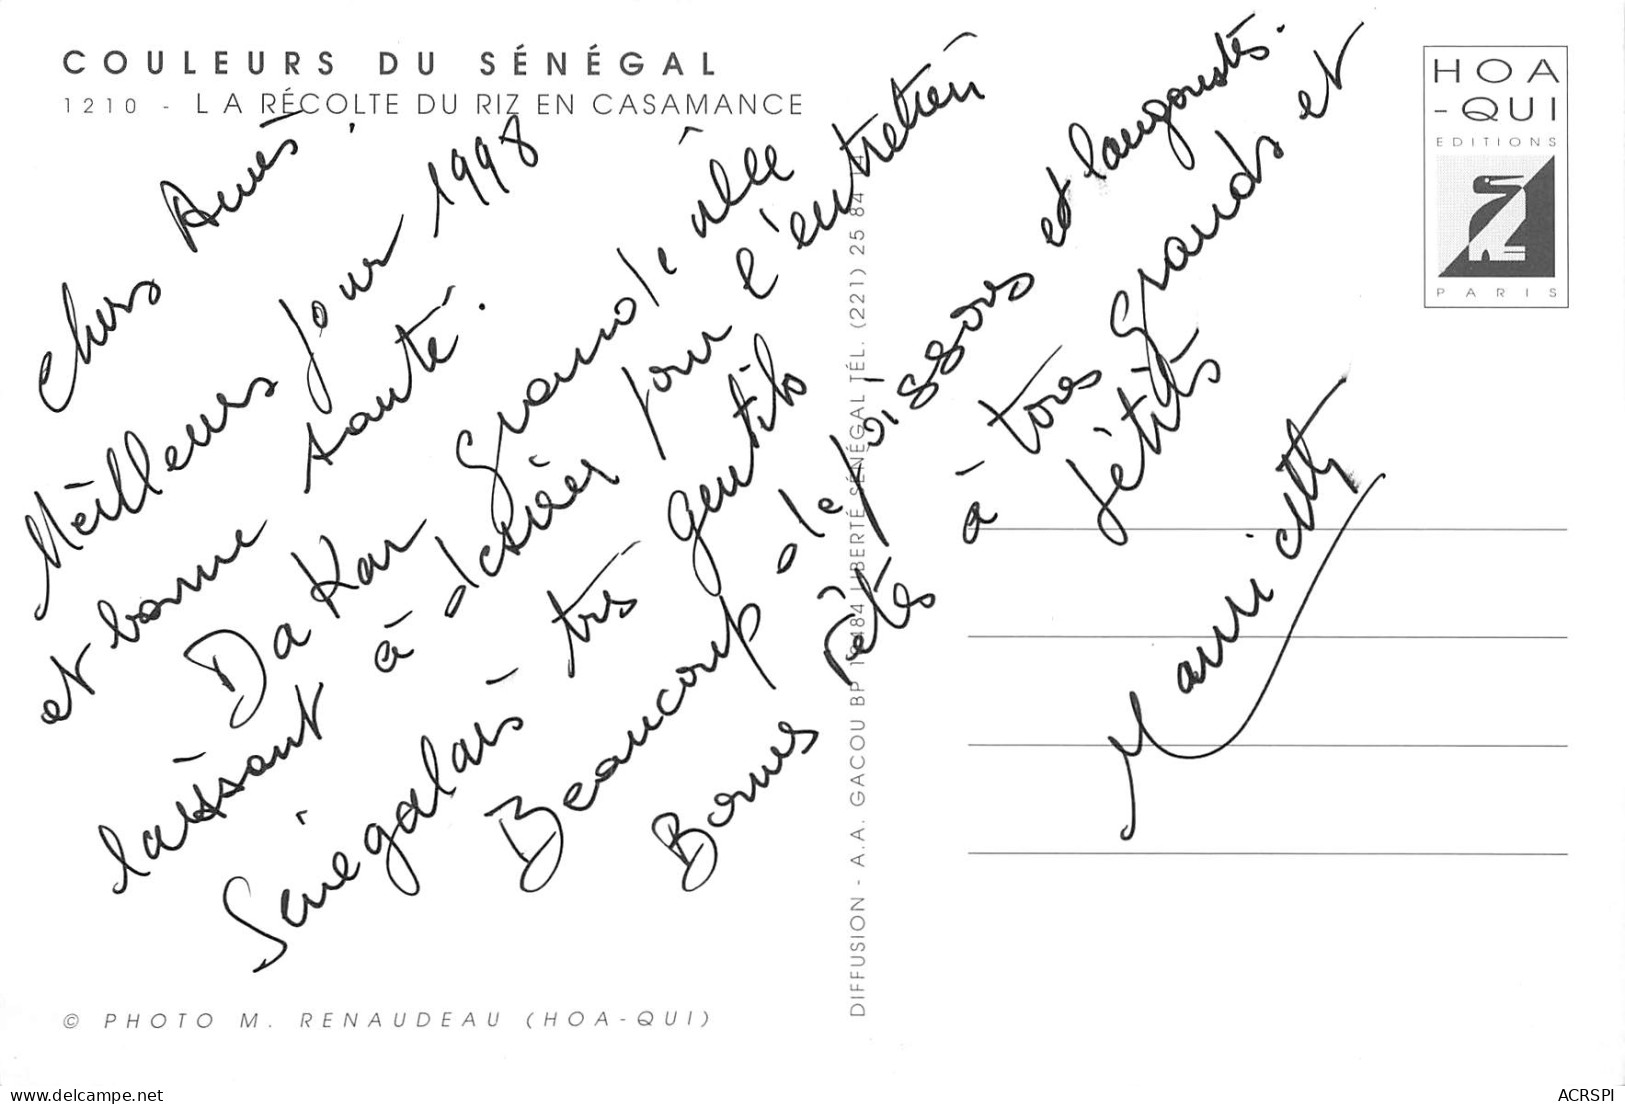 COULEURS DU SÉNÉGAL
1210 - LA RÉCOLTE DU RIZ EN CASAMANCE
HOA
-QUI
EDITIONS
PARIS
Chers Amis.
Meilleurs pour 1998
et bonne santé.
Da Kar grande ville
laissant à désirer pour l'entretien
Sénégalais très gentils
Beaucoup de poissons et langoustes.
Bonnes Fêtes à tous grands et
pétits
DIFFUSION - A.A. GACOU BP 10484 LIBERTÉ SÉNÉGAL TÉL. (221) 25 84 14
© PHOTO M. RENAUDEAU (HOA-QUI)
delcampe.net
ACRSPI